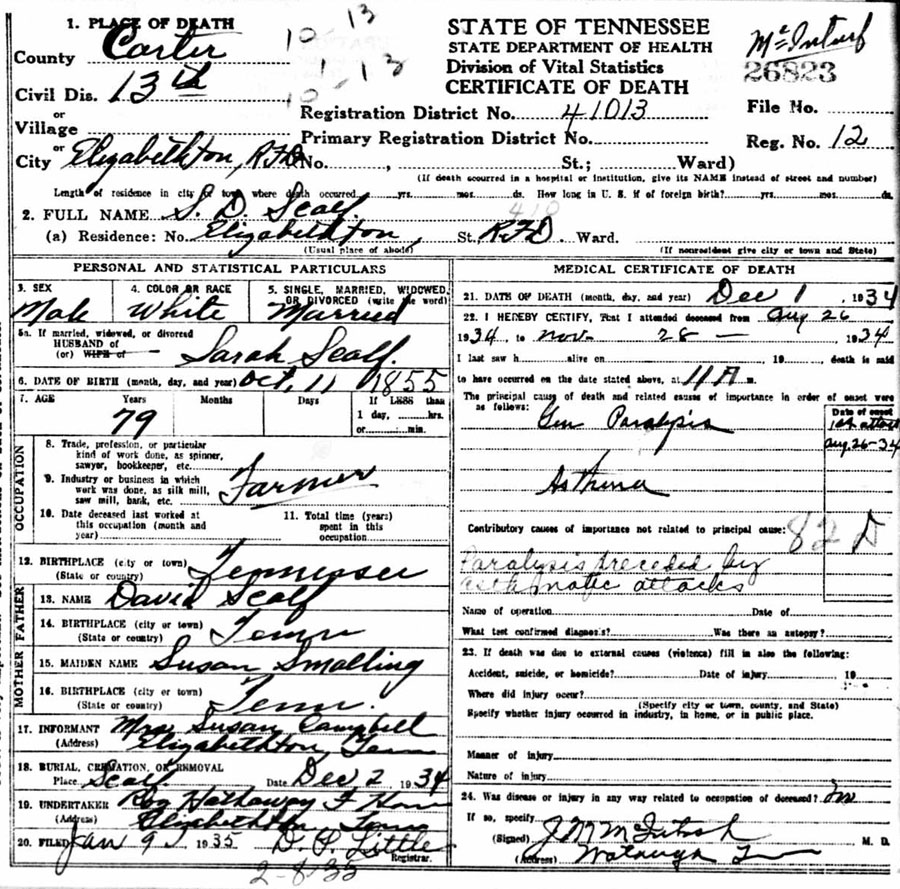 1. PLACE OF DEATH
County Carter
Civil Dis. 13th
or
Village
or
City Elizabethton, RFD No. St.; Ward)
10-13
1
10-13
STATE OF TENNESSEE
STATE DEPARTMENT OF HEALTH
Division of Vital Statistics
CERTIFICATE OF DEATH
Registration District No. 41013
Primary Registration District No.
26823
File No.
Reg. No. 12
(If death occurred in a hospital or institution, give its NAME instead of street and number)
Length of residence in city or town where death occurred yrs. mos. ds. How long in U. S. if of foreign birth? yrs. mos. ds.
2. FULL NAME S. D. Scalf.
410
(a) Residence: No. Elizabethton, St. RFD. Ward.
(Usual place of abode) (If nonresident give city or town and State)
PERSONAL AND STATISTICAL PARTICULARS
3. SEX
Male
4. COLOR OR RACE
White
5. SINGLE, MARRIED, WIDOWED, OR DIVORCED (write the word)
Married
5a. If married, widowed, or divorced
HUSBAND of
(or) WIFE of Sarah Scalf.
6. DATE OF BIRTH (month, day, and year) Oct. 11 1855
7. AGE Years Months Days If LESS than
79 1 day, hrs.
or min.
OCCUPATION
8. Trade, profession, or particular
kind of work done, as spinner,
sawyer, bookkeeper, etc.
9. Industry or business in which
work was done, as silk mill,
saw mill, bank, etc. Farmer
10. Date deceased last worked at
this occupation (month and
year)
11. Total time (years)
spent in this
occupation
12. BIRTHPLACE (city or town)
(State or country) Tennessee
FATHER
13. NAME David Scalf
14. BIRTHPLACE (city or town)
(State or country) Tenn
MOTHER
15. MAIDEN NAME Susan Smalling
16. BIRTHPLACE (city or town)
(State or country) Tenn.
17. INFORMANT Mrs Susan Campbell
(Address) Elizabethton, Tenn
18. BURIAL, CREMATION, OR REMOVAL
Place Scalf Date Dec 2 1934
19. UNDERTAKER Roy Hathaway F Home
(Address) Elizabethton Tenn
20. FILED Jan 9 1935 D. P. Little
Registrar.
2-8-35
MEDICAL CERTIFICATE OF DEATH
21. DATE OF DEATH (month, day, and year) Dec 1, 1934
22. I HEREBY CERTIFY, That I attended deceased from Aug 26
1934, to Nov. 28 — 1934
I last saw h alive on 19 death is said
to have occurred on the date stated above, at 11 A m.
The principal cause of death and related causes of importance in order of onset were
as follows:
Date of onset
Gen Paralysis
1st attack
Aug. 26-34
Asthma
Contributory causes of importance not related to principal cause:
82 D
Paralysis preceded by
asthmatic attacks
Name of operation Date of
What test confirmed diagnosis? Was there an autopsy?
23. If death was due to external causes (violence) fill in also the following:
Accident, suicide, or homicide? Date of injury 19
Where did injury occur?
(Specify city or town, county, and State)
Specify whether injury occurred in industry, in home, or in public place.
Manner of injury
Nature of injury
24. Was disease or injury in any way related to occupation of deceased?
If so, specify
(Signed) McIntosh M. D.
(Address) Watauga